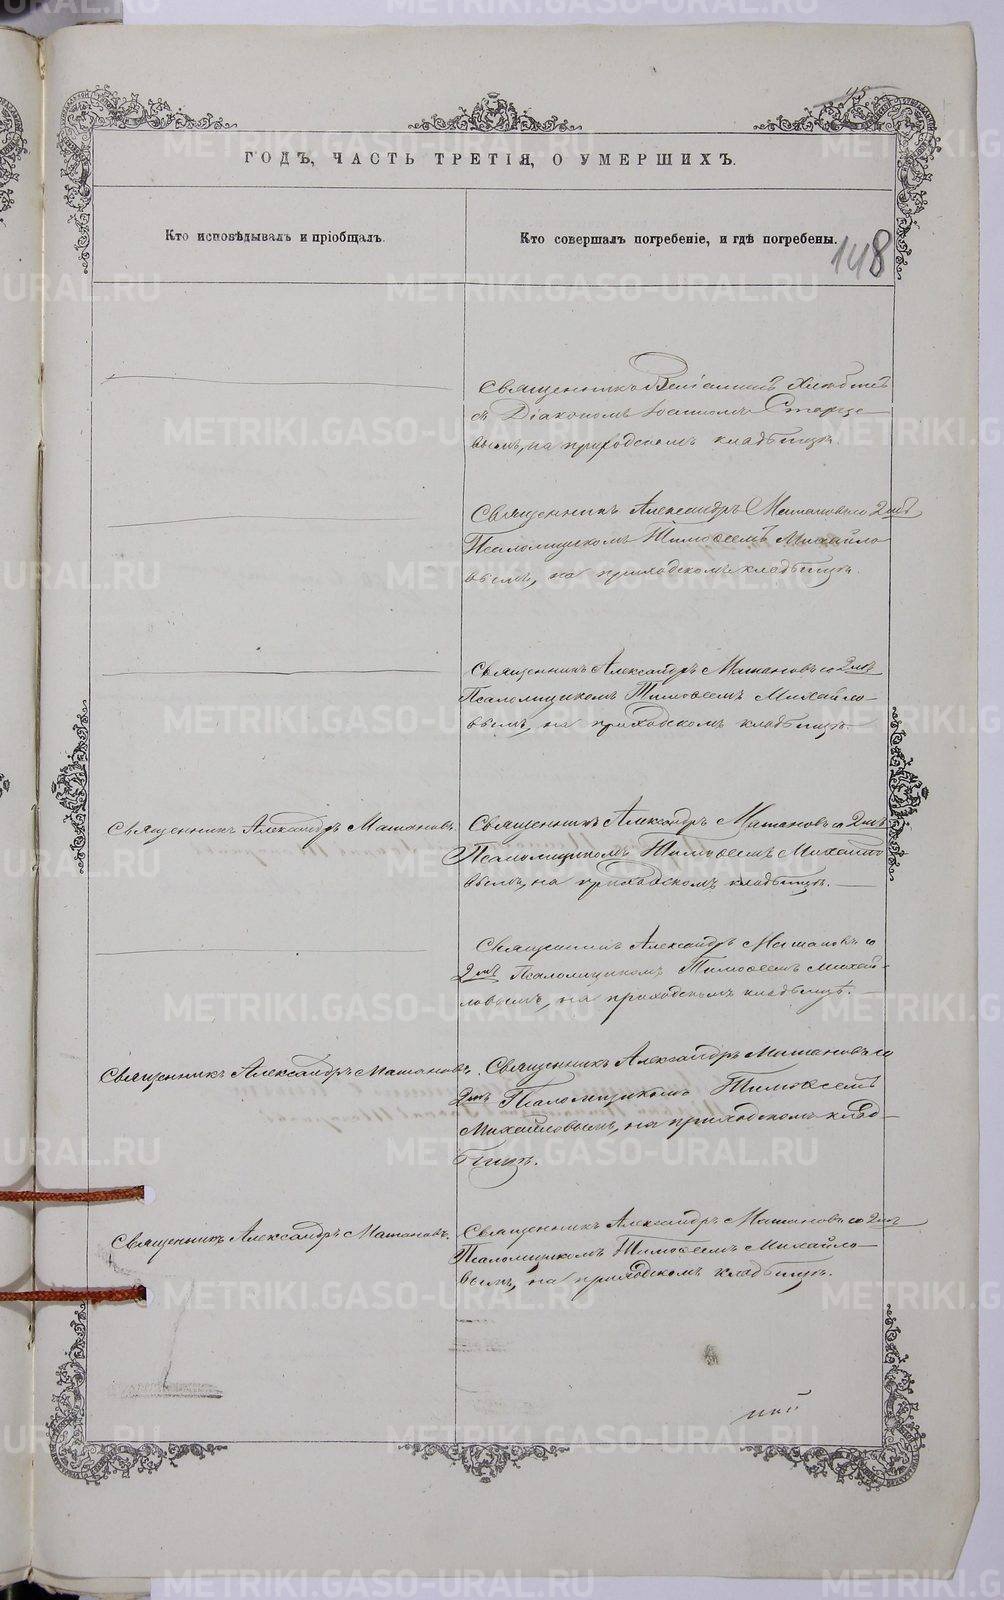 45
ГОДЪ, ЧАСТЬ ТРЕТІЯ, О УМЕРШИХЪ.
Кто исповѣдывалъ и пріобщалъ.
Кто совершалъ погребеніе, и гдѣ погребены.
148
Священникъ Веніаминъ
съ Діакономъ Іоанномъ
вымъ, на приходскомъ кладбищѣ.
Священникъ Александръ Матановъ со 2мъ
Псаломщикомъ Тимоѳеемъ Михайло
вымъ, на приходскомъ кладбищѣ.
Священникъ Александръ Матановъ со 2мъ
Псаломщикомъ Тимоѳеемъ Михайло
вымъ, на приходскомъ кладбищѣ.
Священникъ Александръ Матановъ.
Священникъ Александръ Матановъ со 2мъ
Псаломщикомъ Тимоѳеемъ Михайло
вымъ, на приходскомъ кладбищѣ.
Священникъ Александръ Матановъ со
2мъ Псаломщикомъ Тимоѳеемъ Михай-
ловымъ, на приходскомъ кладбищѣ.
Священникъ Александръ Матановъ.
Священникъ Александръ Матановъ со
2мъ Псаломщикомъ Тимоѳеемъ
Михайловымъ, на приходскомъ клад-
бищѣ.
Священникъ Александръ Матановъ.
Священникъ Александръ Матановъ со 2мъ
Псаломщикомъ Тимоѳеемъ Михайло
вымъ, на приходскомъ кладбищѣ.
METRIKI.GASO-URAL.RU